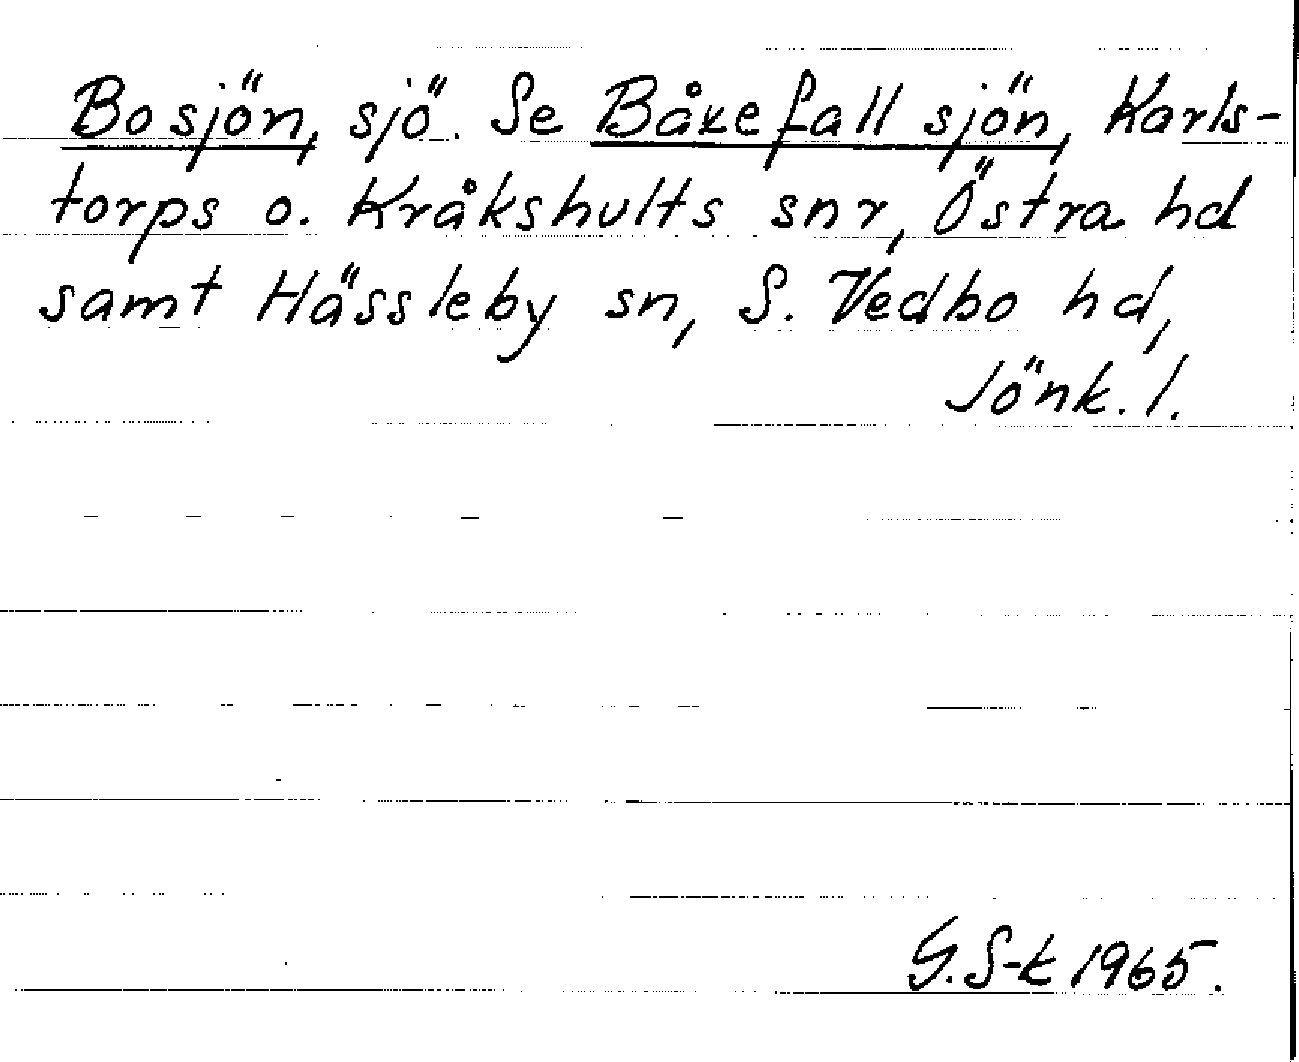 Bosjön, sjö. Se Båkefallsjön, Karls-
torps o. Kråkshults snr, Östra hd
samt Hässleby sn, S. Vedbo hd,
Jönk. l.
G. S-k 1965.